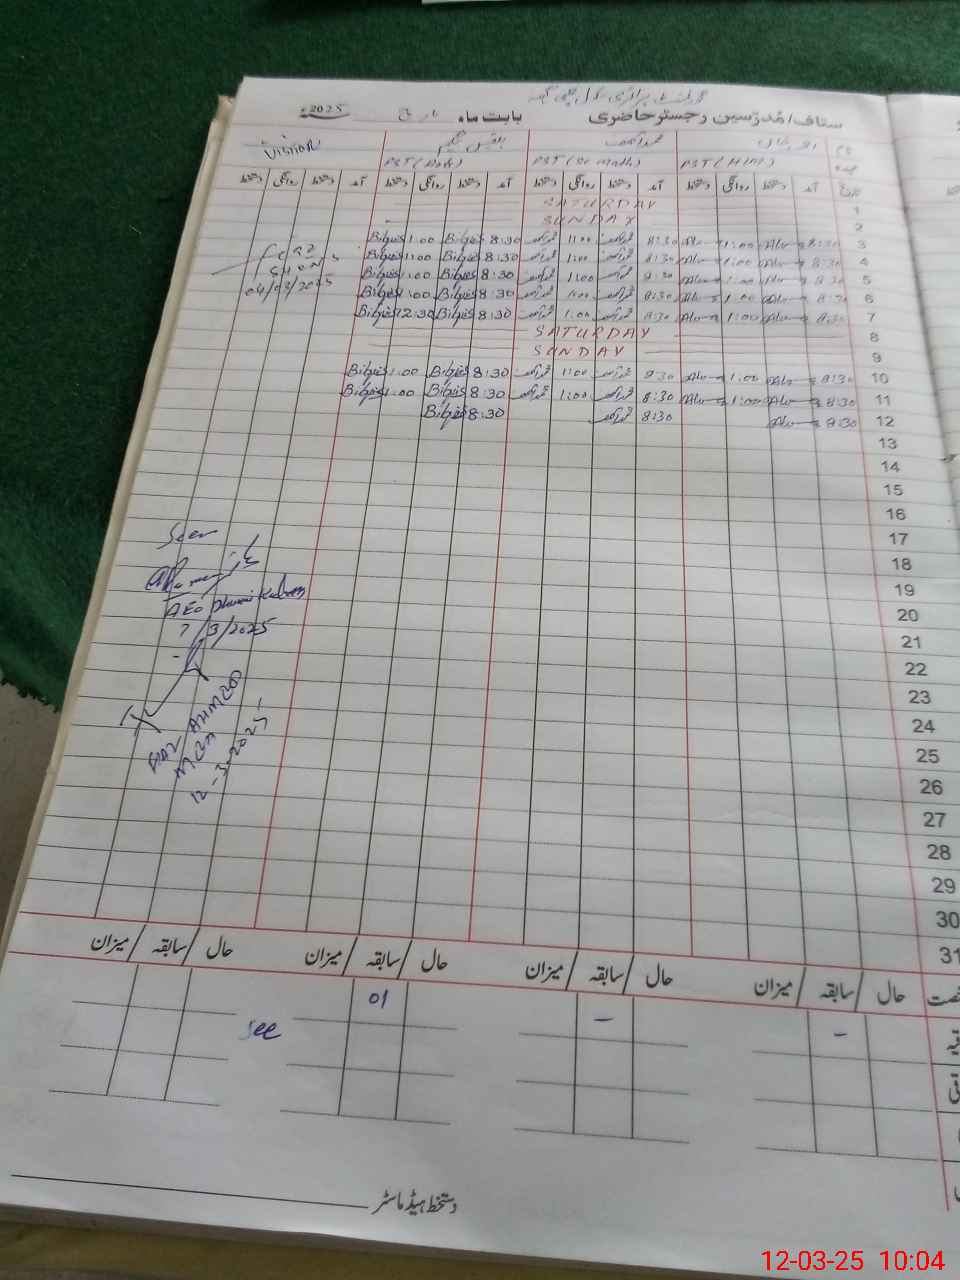 گورنمنٹ پرائمری سکول
سٹاف/مُدرّسین رجسٹر حاضری بابت ماہ مارچ 2025ء
نام محمد آصف بلقیس بیگم Vision
عہدہ PST (H/M) PST (Sc math) PST
تاریخ آمد دستخط روانگی دستخط آمد دستخط روانگی دستخط آمد دستخط روانگی دستخط آمد دستخط روانگی دستخط
1 SATURDAY
2 SUNDAY
3 8:30 1:00 8:30 محمد آصف 1:00 محمد آصف 8:30 Bilqis 1:00 Bilqis
4 8:30 1:00 8:30 محمد آصف 1:00 محمد آصف 8:30 Bilqis 1:00 Bilqis
5 8:30 1:00 8:30 محمد آصف 1:00 محمد آصف 8:30 Bilqis 1:00 Bilqis
6 8:30 1:00 8:30 محمد آصف 1:00 محمد آصف 8:30 Bilqis 1:00 Bilqis
7 8:30 1:00 8:30 محمد آصف 1:00 محمد آصف 8:30 Bilqis 12:30 Bilqis
8 SATURDAY
9 SUNDAY
10 8:30 1:00 8:30 محمد آصف 1:00 محمد آصف 8:30 Bilqis 1:00 Bilqis
11 8:30 1:00 8:30 محمد آصف 1:00 محمد آصف 8:30 Bilqis 1:00 Bilqis
12 8:30 8:30 محمد آصف 8:30 Bilqis
04/03/2025
13
14
15
16
17
18
19
20
21
22
23
24
25
26
27
28
29
30
31
Seen
AEO
7/3/2025
AHMED
MEA
12-3-2025
حال / سابقہ / میزان حال / سابقہ / میزان حال / سابقہ / میزان حال / سابقہ / میزان
- - 01
see
دستخط ہیڈ ماسٹر
12-03-25 10:04